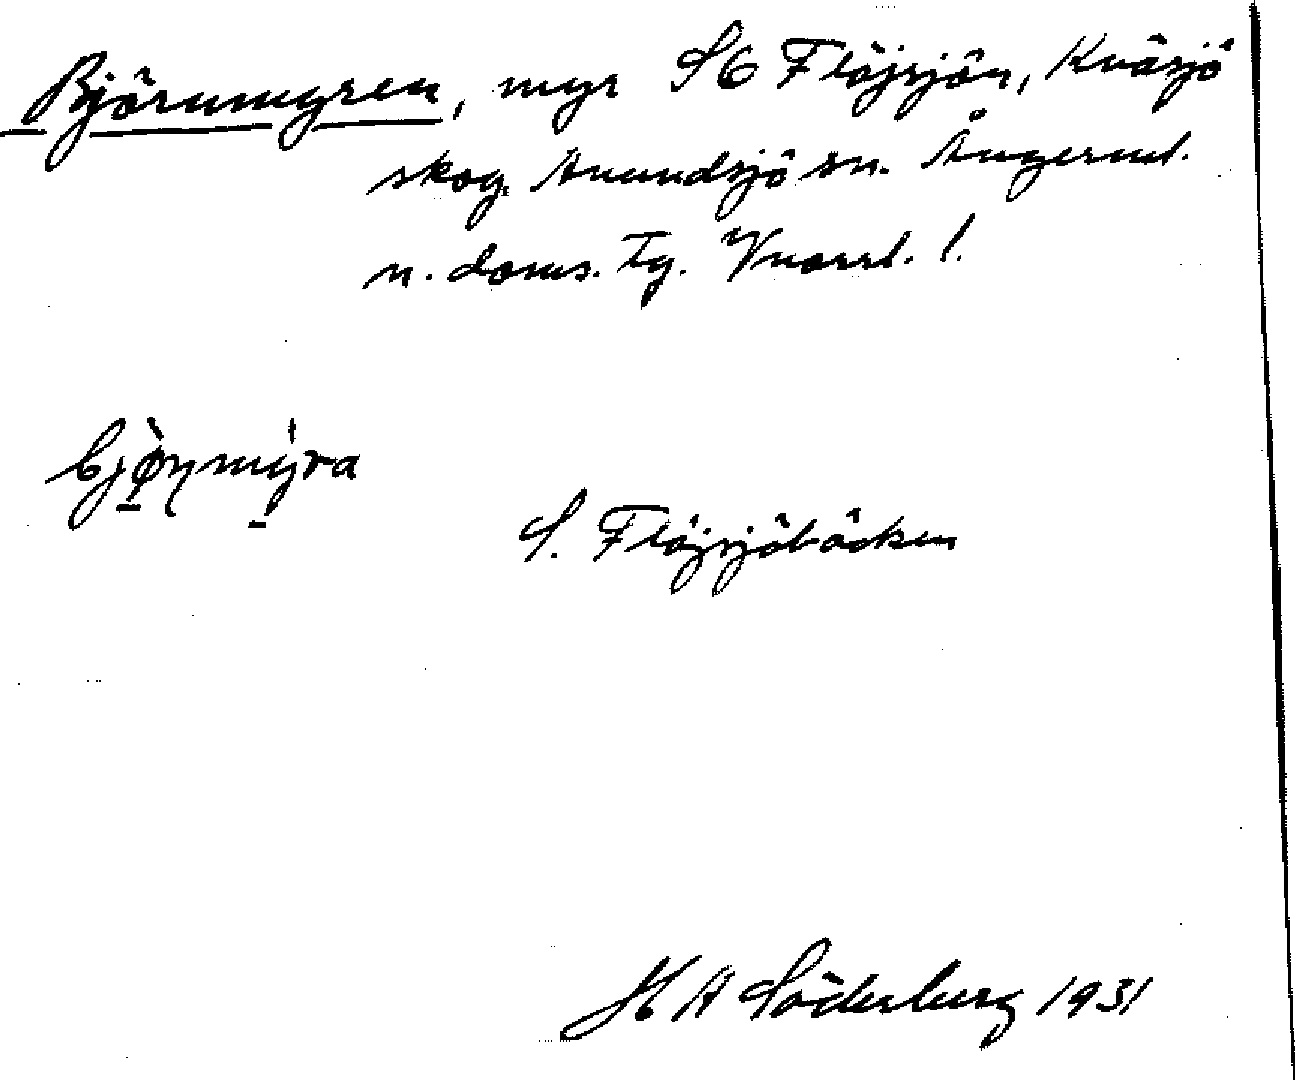 Björnmyren, myr SO Flöjsjön, Kvåsjö
skog. Anundsjö sn. Ångerml.
n. doms. Tg. Vnorrl. l.
bjø̀ṇmy̍ra
S. Flöjsjöbäcken
H A Söderberg 1931